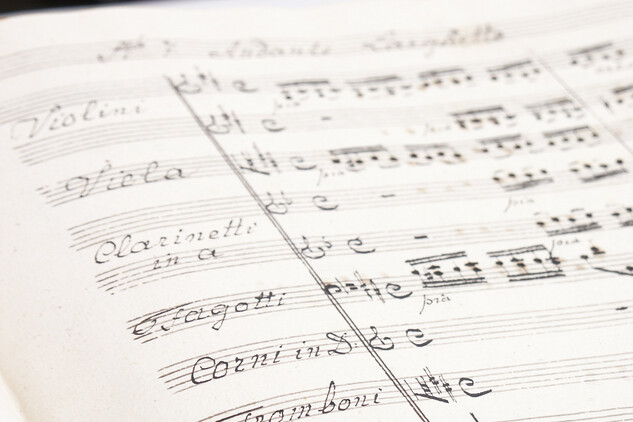 Nº 7. Andante Larghetto
Violini
pia
Viola
pia
pia
Clarinetti
in a
pia
Fagotti
pia
Corni in D:
Tromboni